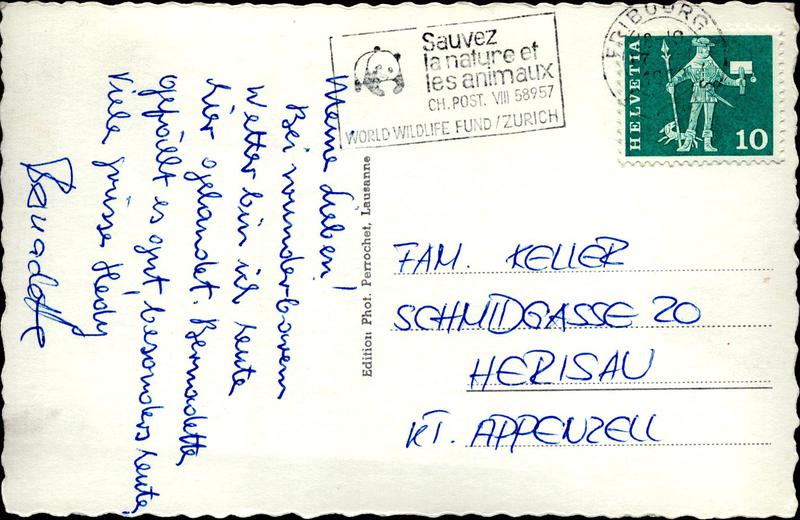 Meine Lieben!
Bei wunderbarem
Wetter bin ich heute
hier gelandet. Bernadette
gefällt es gut, besonders heute,
Viele Grüsse Hedy
Sauvez
la nature et
les animaux
CH. POST. VIII 58957
WORLD WILDLIFE FUND/ZURICH
FRIBOURG
HELVETIA
10
Edition Phot. Perrochet, Lausanne
FAM. KELLER
SCHMIDGASSE 20
HERISAU
KT. APPENZELL